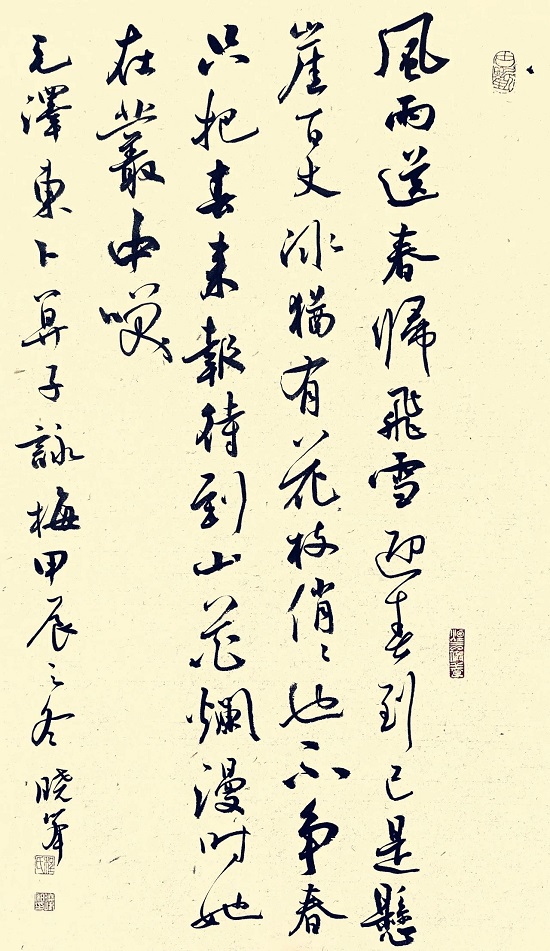 風雨送春帰飛雪迎春到已是懸
崖百丈冰猶有花枝俏〻也不争春
只把春来報待到山花爛漫时她
在叢中咲
毛澤東卜算子詠梅甲辰之冬 晓峯